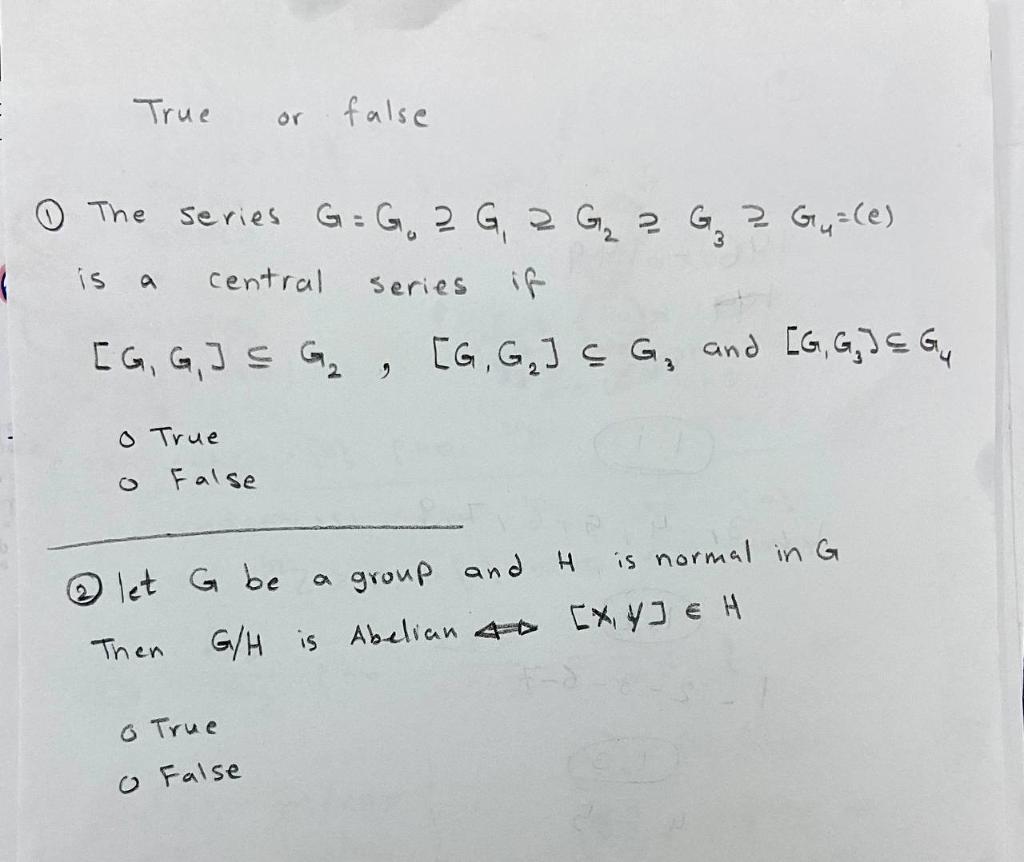 True or false
① The series G = G₀ ⊇ G₁ ⊇ G₂ ⊇ G₃ ⊇ G₄ = (e)
is a central series if
[G, G₁] ⊆ G₂ , [G, G₂] ⊆ G₃ and [G, G₃] ⊆ G₄
o True
o False
② let G be a group and H is normal in G
Then G/H is Abelian ⇔ [X, Y] ∈ H
o True
o False